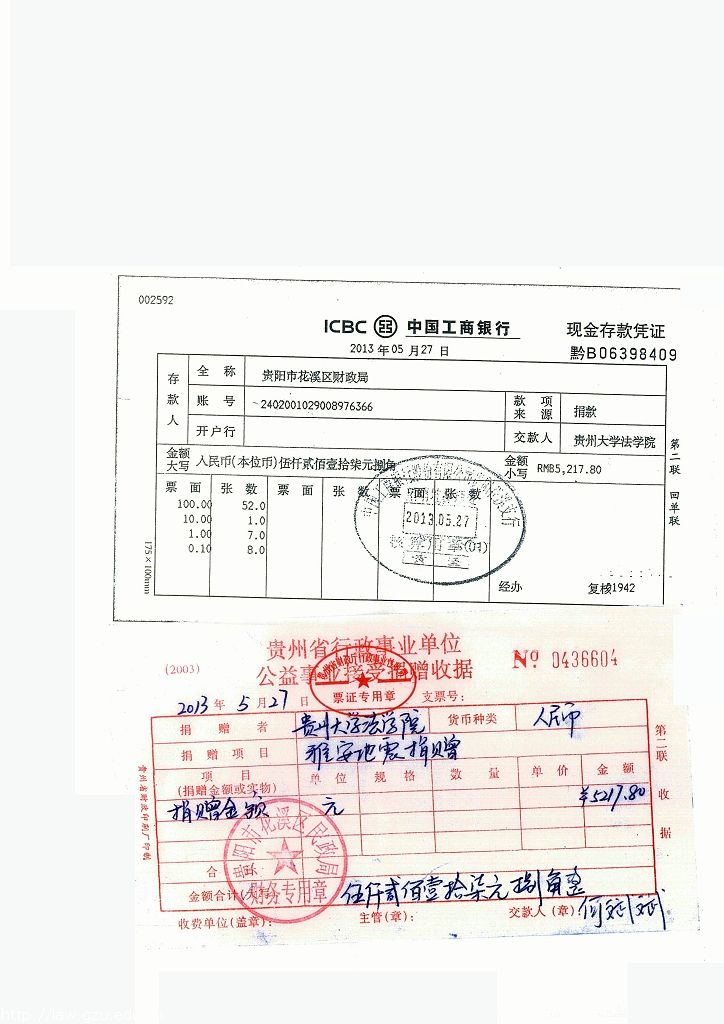 002592
ICBC 中国工商银行
现金存款凭证
2013 年 05 月 27 日
黔B06398409
存款人
全 称 贵阳市花溪区财政局
账 号 2402001029008976366
款项来源 捐款
开户行
交款人 贵州大学法学院
金额大写 人民币(本位币)伍仟贰佰壹拾柒元捌角
金额小写 RMB5,217.80
票 面 张 数 票 面 张 数 票 面 张 数
100.00 52.0
10.00 1.0
1.00 7.0
0.10 8.0
2013.05.27
(01)
经办 复核1942
175×100mm
第二联 回单联
贵州省行政事业单位
公益事业接受捐赠收据
(2003)
No 0436604
票证专用章
2013 年 5 月 27 日 支票号:
捐 赠 者 贵州大学法学院 货币种类 人民币
捐 赠 项 目 雅安地震捐赠
项 目
(捐赠金额或实物) 单 位 规 格 数 量 单 价 金 额
捐赠金额 元 ¥5217.80
合
金额合计(大写) 伍仟贰佰壹拾柒元捌角整
贵阳市花溪区民政局
财务专用章
收费单位(盖章): 主管(章): 交款人(章):
第二联 收据
贵州省财政印刷厂印制
http://law.gzu.edu